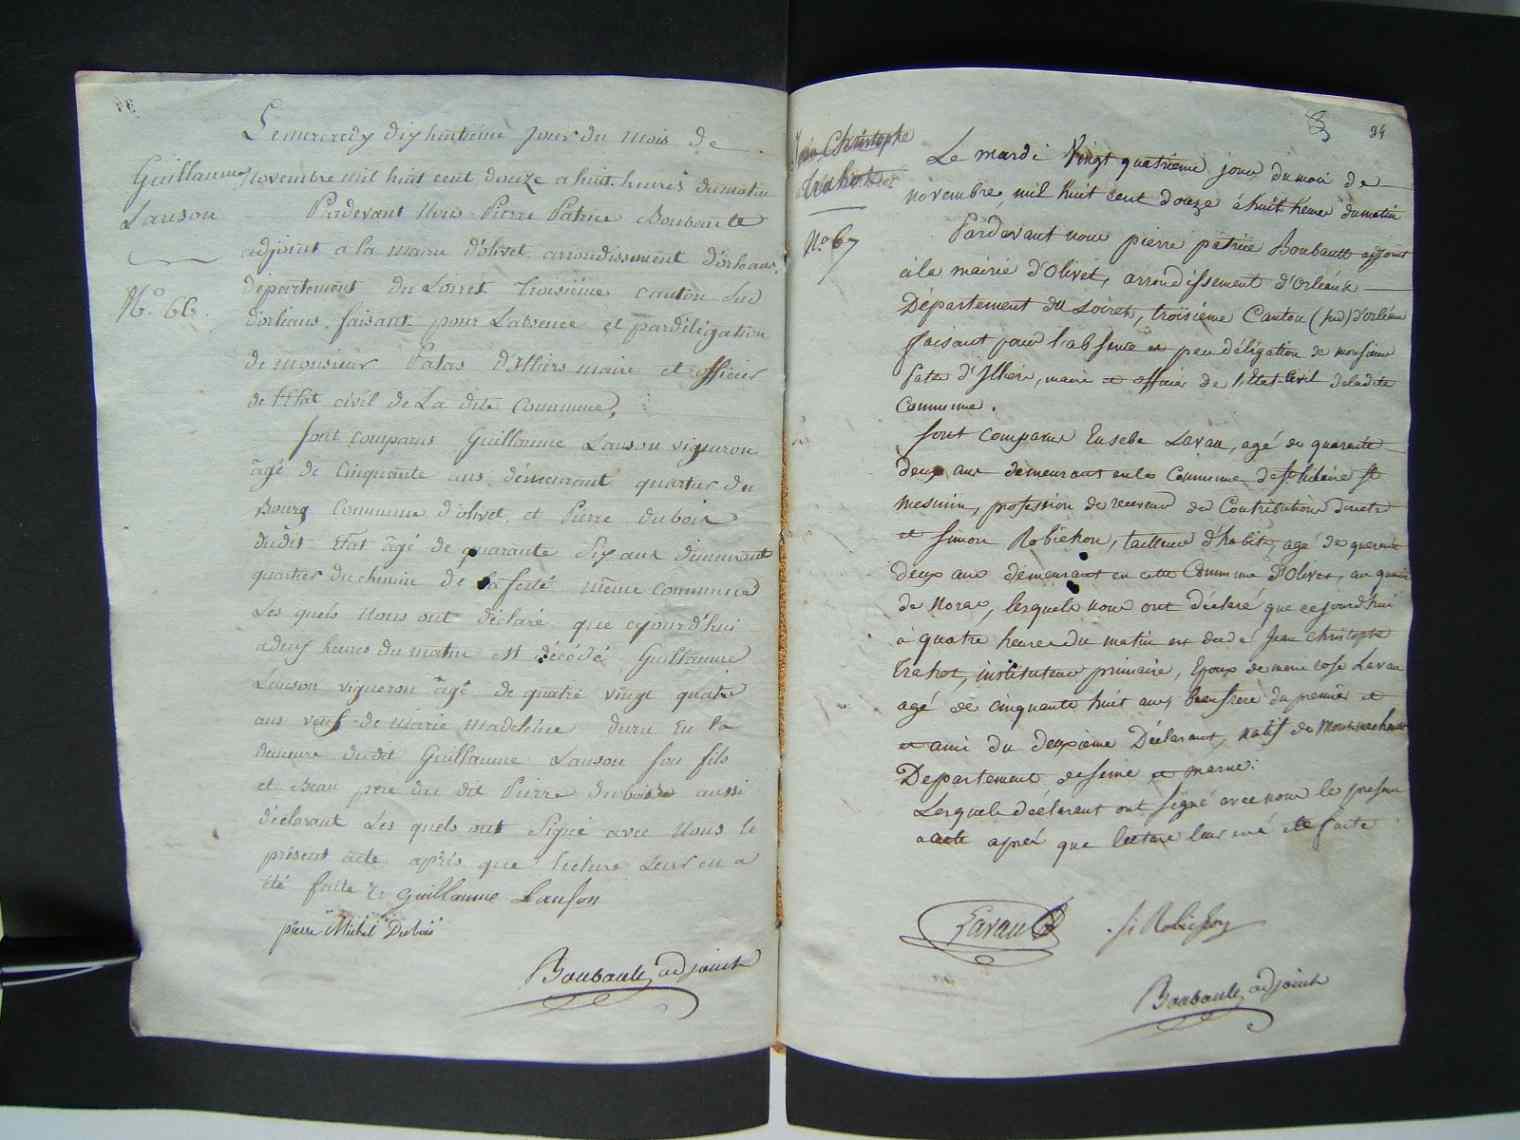 Guillaume
Lanson
N.º 66.
Le mercredy dix huitieme Jour du mois de
novembre mil huit cent douze a huit heures du matin
Pardevant Nous Pierre Patrice Boubault
adjoint a la mairie d'olivet arrondissement d'orleans,
département du Loiret troisième canton Sud
d'orléans, faisant pour Labsence et pardélégation
de monsieur Patas d'Illiers maire et officier
de l'état civil de La dite Commune,
sont comparus Guillaume Lanson vigneron
âgé de Cinquante ans démeurant quartier du
Bourg Commune d'olivet et Pierre dubois
dudit Etat âgé de quarante Six ans démeurant
quartier du chemin de la ferté même commune
Les quels Nous ont déclaré que cejourd'hui
a deux heures du matin est décédé Guillaume
Lanson vigneron âgé de quatre vingt quatre
ans veuf de marie madeleine duru En la
demeure dudit Guillaume Lanson son fils
et Beau pere du dit Pierre dubois aussi
déclarant Les quels ont Signé avec Nous le
présent acte après que lecture Leur en a
été faite Guillaume Lanson
pierre Michel Dubois
Boubault adjoint
94
Jean Christophe
trahot
N.º 67
Le mardi Vingt quatrieme jour du moi de
novembre, mil huit cent douze à huit heures du matin
Pardevant nous pierre patrice Boubault adjoint
à la mairie d'Olivet, arrondissement d'Orléans
Département du Loiret, troisième Canton (sud) d'orléans
faisant pour l'absence et par délégation de monsieur
Patas d'Illiers, maire et officier de l'Etat Civil de la dite
Commune.
Sont comparus Eusebe Lavau, agé de quarante
deux ans demeurant en la Commune de St hilaire St
mesmin, profession de receveur de Contributions directes
et simon Robichon, tailleur d'habits, agé de quarante
deux ans demeurant en cette Commune d'Olivet, au quartier
de Noras, lesquels nous ont déclaré que cejourd'hui
à quatre heures du matin est décédé Jean Christophe
trahot, instituteur primaire, Epoux de marie rose Lavau
agé de cinquante huit ans Beaufrere du premier et
et ami du deuxième Déclarant, natif de
Departement de seine et marne.
Lesquels déclarant ont signé avec nous le présent
acte après que lecture leur en a été faite
Lavau
S. Robichon
Boubault adjoint